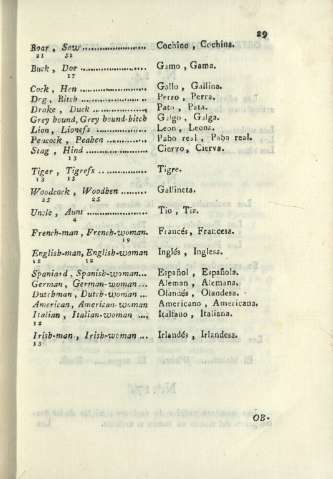 29
Boar, Sow ........................ Cochino, Cochina.
21 51
Buck, Doe ........................ Gamo, Gama.
17
Cock, Hen ........................ Gallo, Gallina.
Dog, Bitch ........................ Perro, Perra.
Drake, Duck .................... Pato, Pata.
Grey hound, Grey hound-bitch Galgo, Galga.
Lion, Lionefs .................... Leon, Leona.
Peacock, Peahen ................ Pabo real, Paba real.
Stag, Hind ........................ Cierzo, Cierva.
13
Tiger, Tigrefs .................... Tigre.
13 13
Woodcock, Woodhen ......... Gallineta.
25 25
Uncle, Aunt ...................... Tio, Tia.
4
French-man, French-woman. Francés, Francesa.
19
English-man, English-woman Inglés, Inglesa.
12 12
Spaniard, Spanish-woman... Español, Española.
German, German-woman ... Aleman, Alemana.
Dutchman, Dutch-woman ... Olandés, Olandesa.
American, American-woman Americano, Americana.
Italian, Italian-woman ..., Italiano, Italiana.
12
Irish-man, Irish-woman ... Irlandés, Irlandesa.
13
OB-